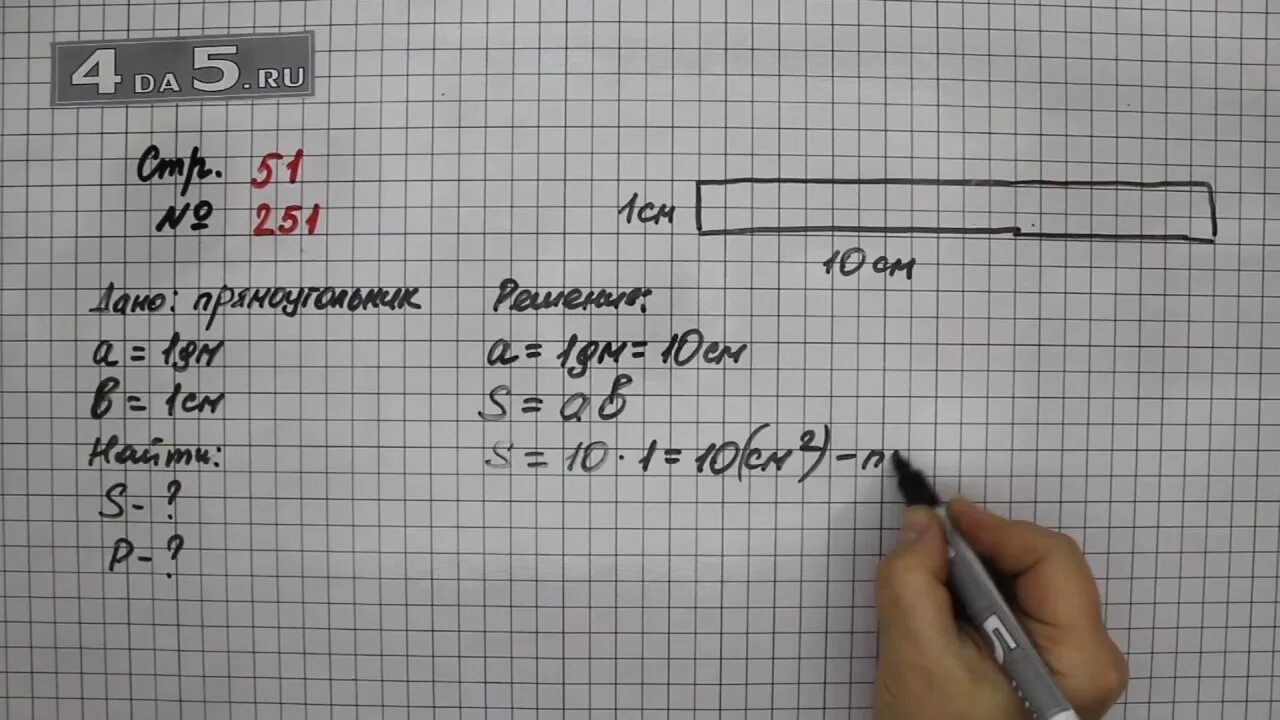 4DA5.RU
Стр. 51
№ 251
1см
10 см
Дано: прямоугольник
a = 1дм
в = 1см
Найти:
S - ?
P - ?
Решение:
a = 1дм = 10 см
S = a в
S = 10 · 1 = 10 (см²) - п